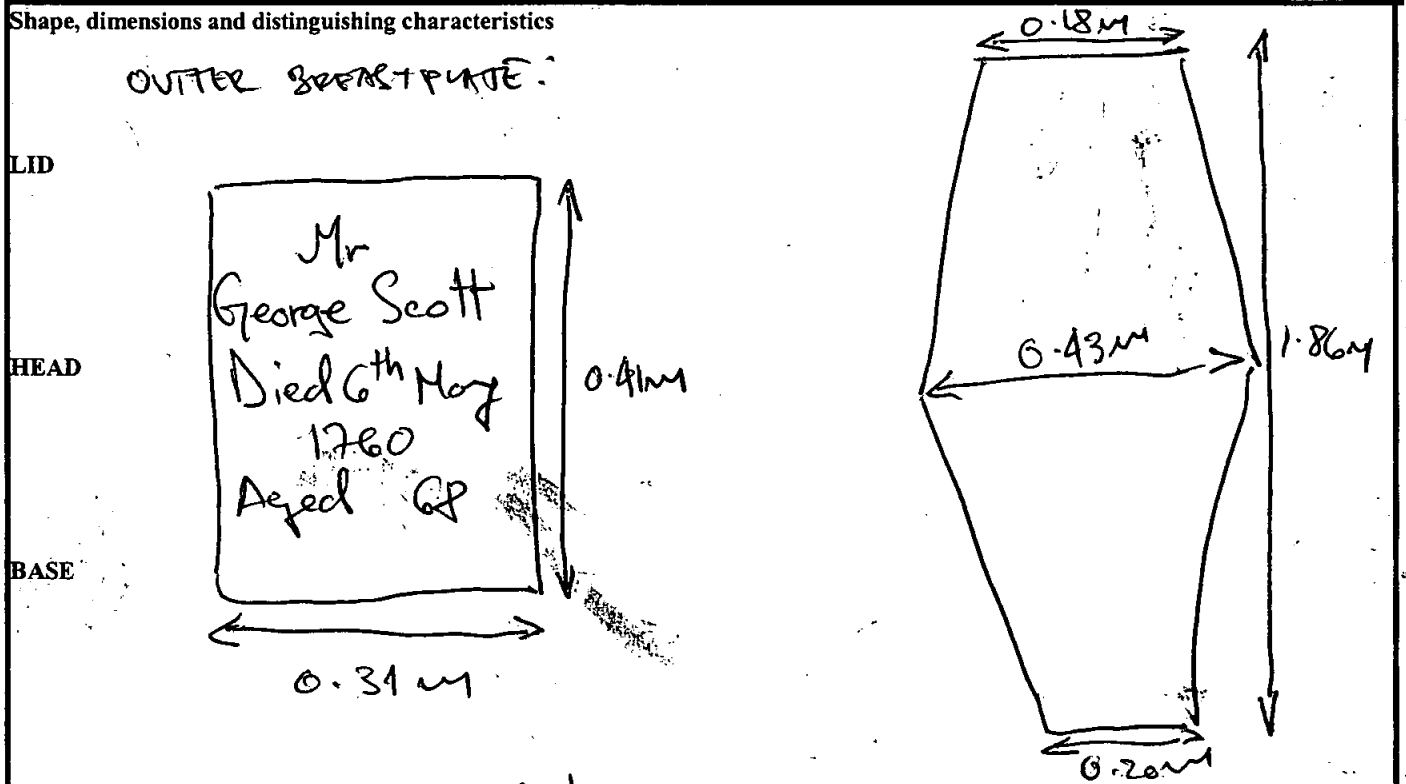 Shape, dimensions and distinguishing characteristics
OUTTER BREASTPLATE:
LID
HEAD
BASE
Mr
George Scott
Died 6th May
1760
Aged 68
0.41m
0.31m
0.18m
0.43m
1.86m
0.20m